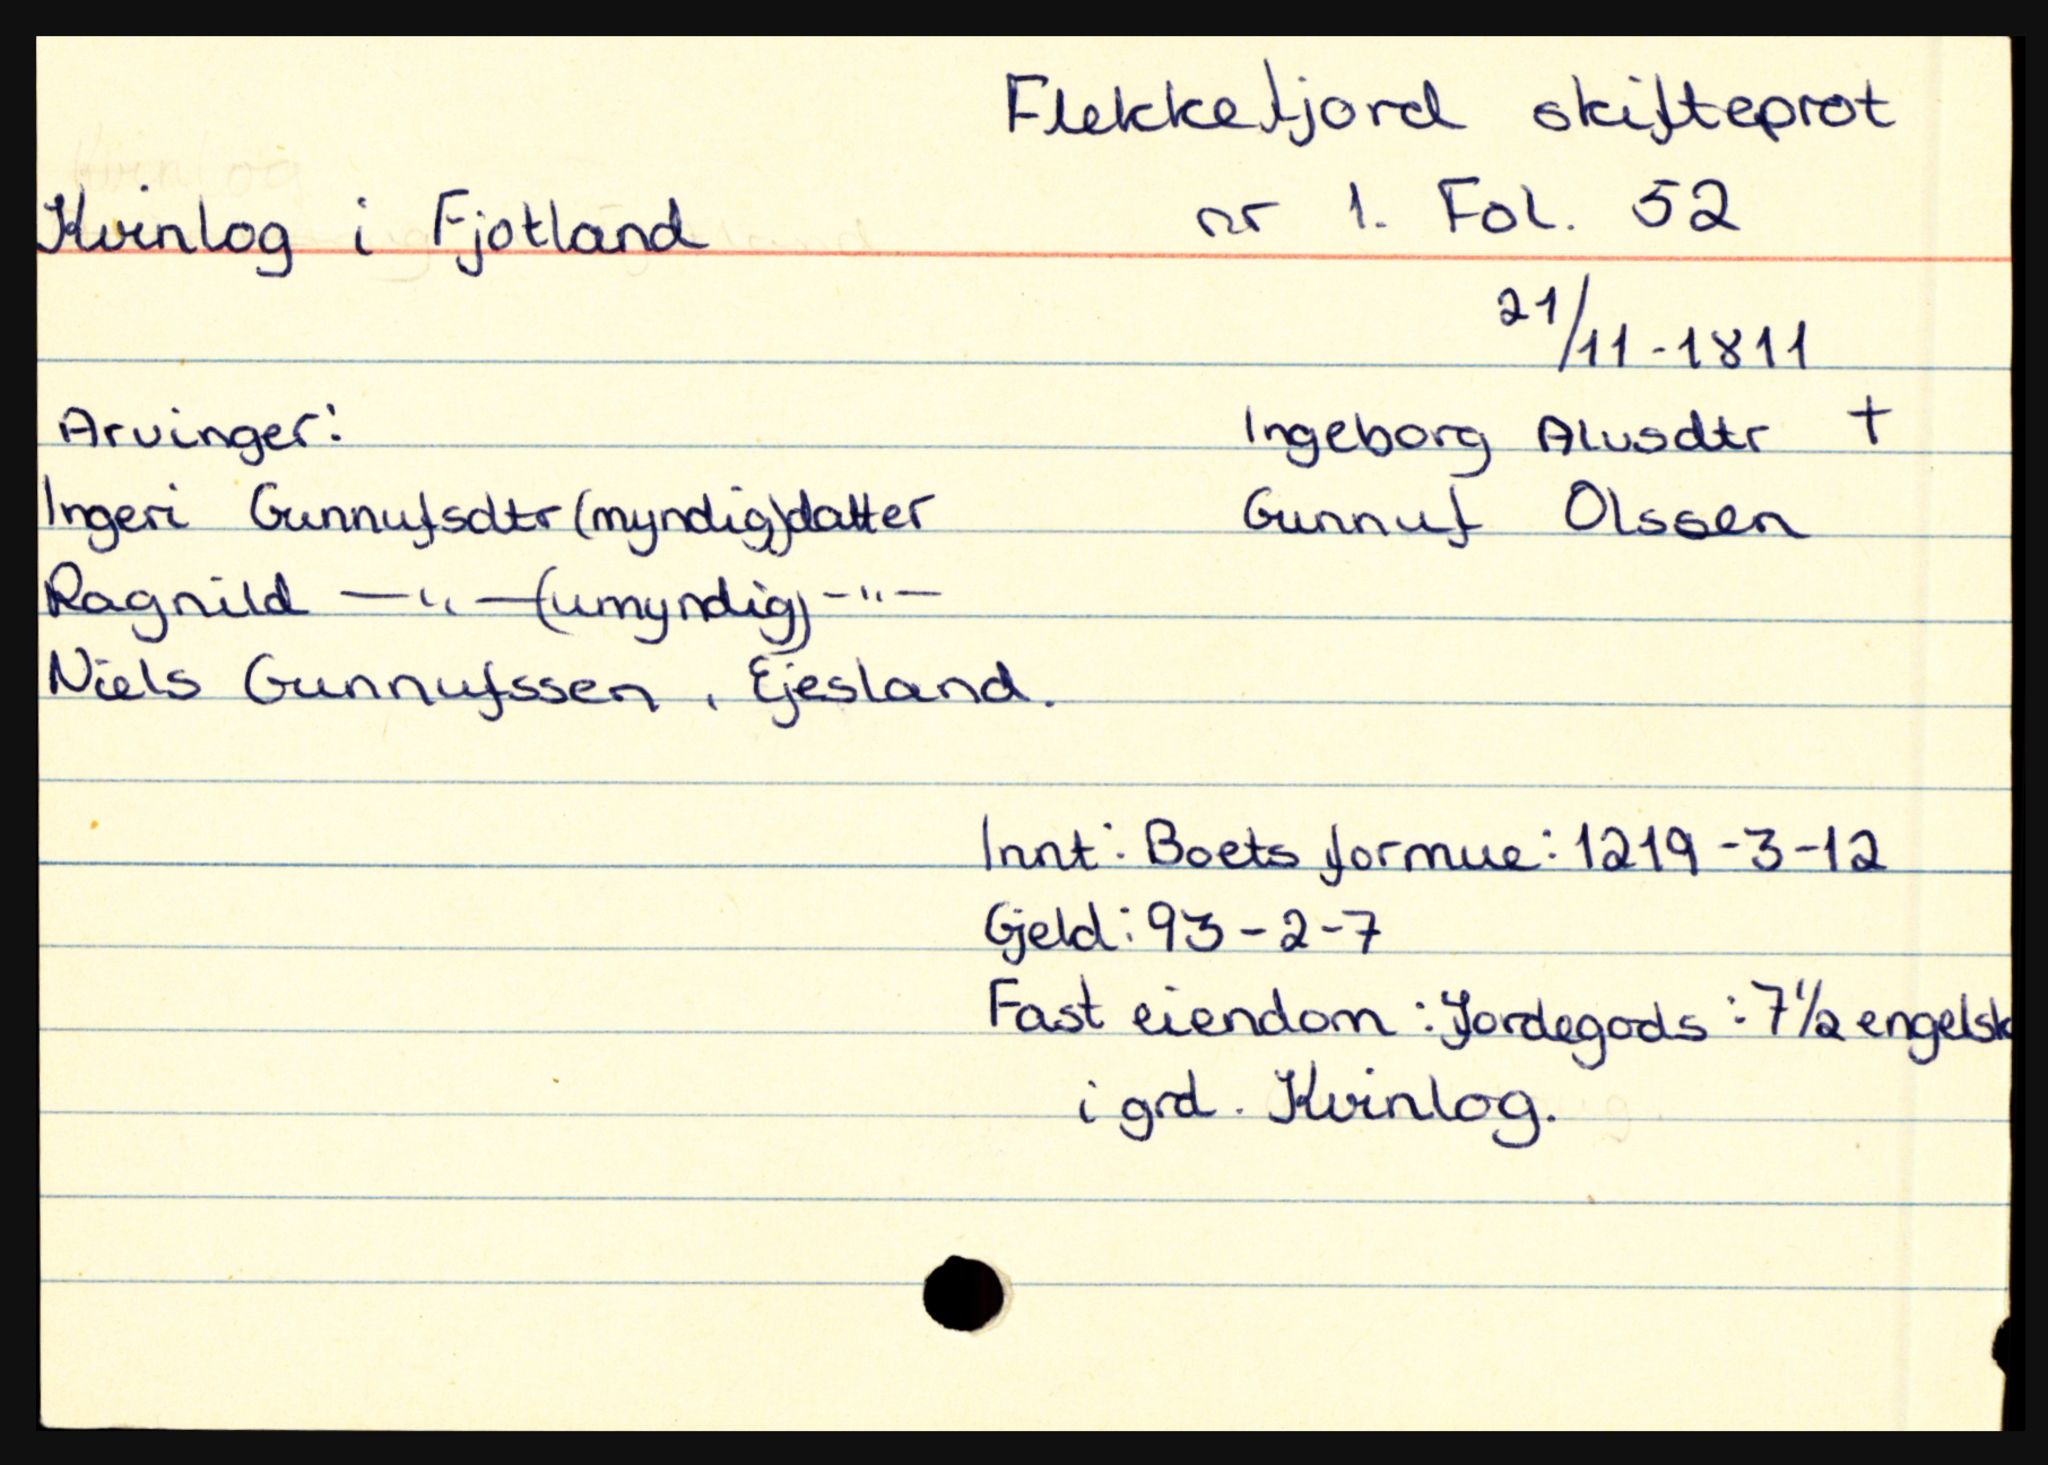 Flekkefjord skifteprot
Kvinlog i Fjotland nr 1. Fol. 52
21/11-1811
Arvinger: Ingeborg Alvsdtr +
Ingeri Gunnufsdtr (myndig) datter Gunnuf Olssen
Ragnild —"— (umyndig) -"-
Niels Gunnufssen, Ejesland.
Innt: Boets formue: 1219-3-12
Gjeld: 93-2-7
Fast eiendom: Jordegods: 7 1/2 engelsk
i grd. Kvinlog.